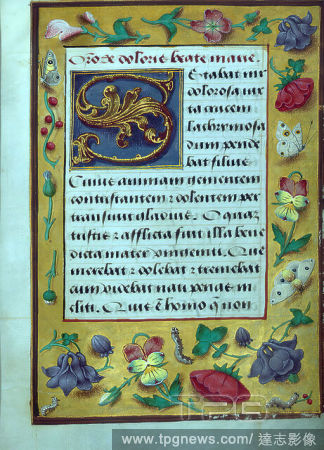 Orõ de doloris beate marie.
Stabat mr
dolorosa iux
ta crucem
lachrymosa
dum pende
bat filius
Cuius animam gementem
contristantem ⁊ dolentem per
transiuit gladius. O quaz
tristis ⁊ afflicta fuit illa bene
dicta mater vnigeniti. Que
merebat ⁊ dolebat ⁊ tremebat
cum videbat nati penas in
cliti. Quis ē homo q̄ non
TPG
www.tpgnews.com / 達志影像